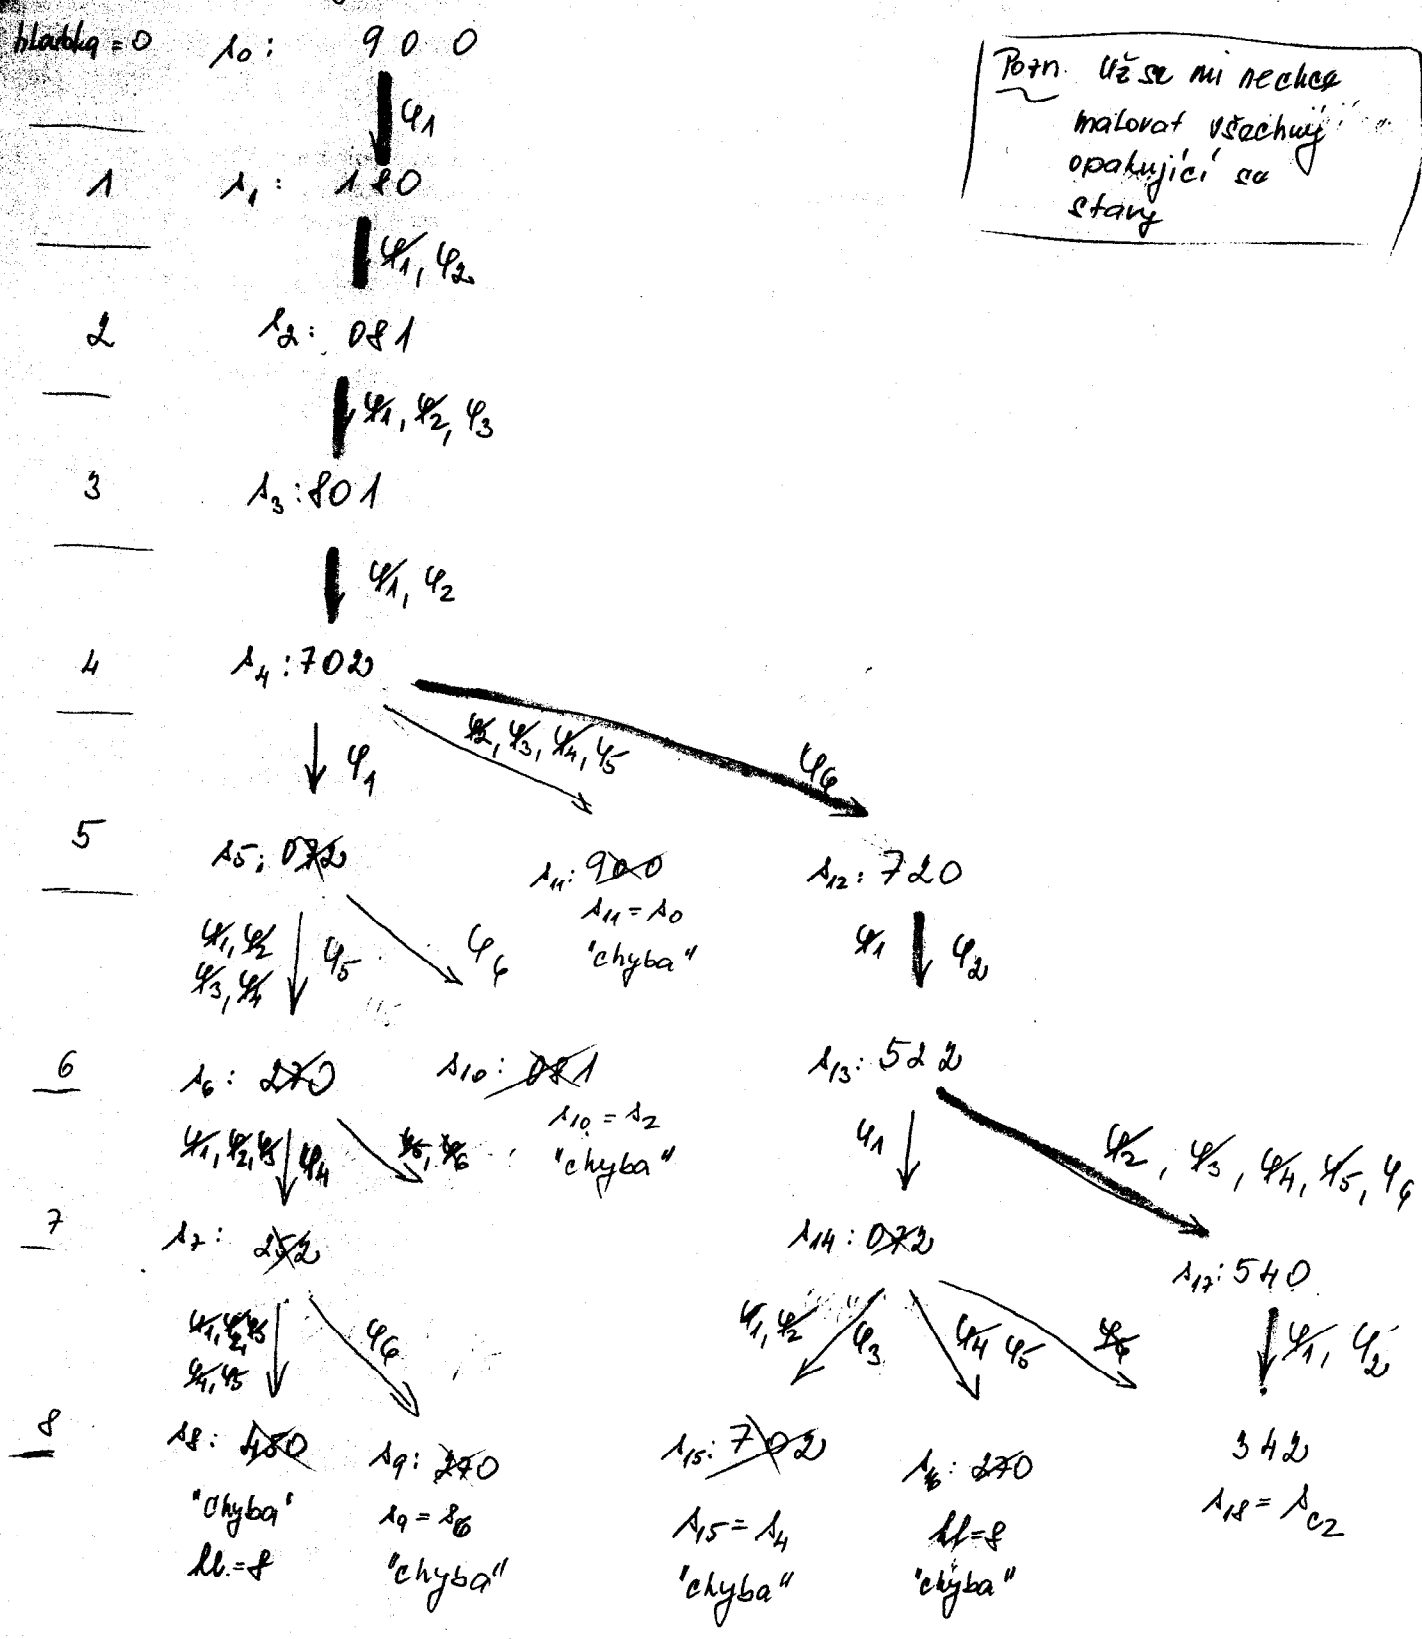 hloubka = 0 s0: 9 0 0
Pozn. Už se mi nechce
malovat všechny
opakující se
stavy
φ1
1 s1: 180
φ1, φ2
2 s2: 081
φ1, φ2, φ3
3 s3: 801
φ1, φ2
4 s4: 702
φ1
φ2, φ3, φ4, φ5
φ6
5 s5: 072
s11: 900
s11 = s0
"chyba"
s12: 720
φ1, φ2
φ3, φ4
φ5
φ6
φ1 φ2
6 s6: 270
s10: 081
s10 = s2
"chyba"
s13: 522
φ1, φ2, φ3 φ4
φ5, φ6
φ1
φ2, φ3, φ4, φ5, φ6
7 s7: 252
s14: 072
s17: 540
φ1, φ2, φ3
φ4, φ5
φ6
φ1, φ2 φ3
φ4 φ5
φ6
φ1, φ2
8 s8: 450
"chyba"
hl. = 8
s9: 270
s9 = s6
"chyba"
s15: 702
s15 = s4
"chyba"
s16: 270
hl = 8
"chyba"
342
s18 = sc2